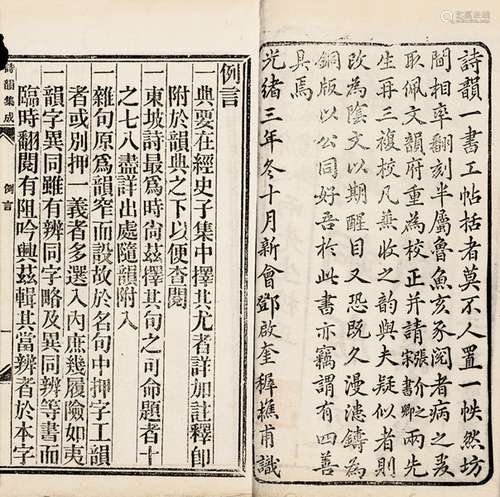 詩韻一書工帖括者莫不人置一帙然坊
間相率翻刻半屬魯魚亥豕閱者病之爰
取佩文韻府重為校正并請張介宋書卿兩先
生再三複校凡兼收之韻與夫疑似者則
改為陰文以期醒目又恐既久漫漶鑄為
銅版以公同好吾於此書亦竊謂有四善
具焉
光緒三年冬十月新會鄧啟奎穉樵甫識
例言
一典要在經史子集中擇其尤者詳加註釋卽
附於韻典之下以便查閱
一東坡詩最爲時尙茲擇其句之可命題者十
之七八盡詳出處隨韻附入
一雜句原爲韻窄而設故於名句中押字工韻
者或別押一義者多選入內庶幾履險如夷
一韻字異同雖有辨同字略及異同辨等書而
臨時翻閱有阻吟興茲輯其當辨者於本字
詩韻集成
例言
一